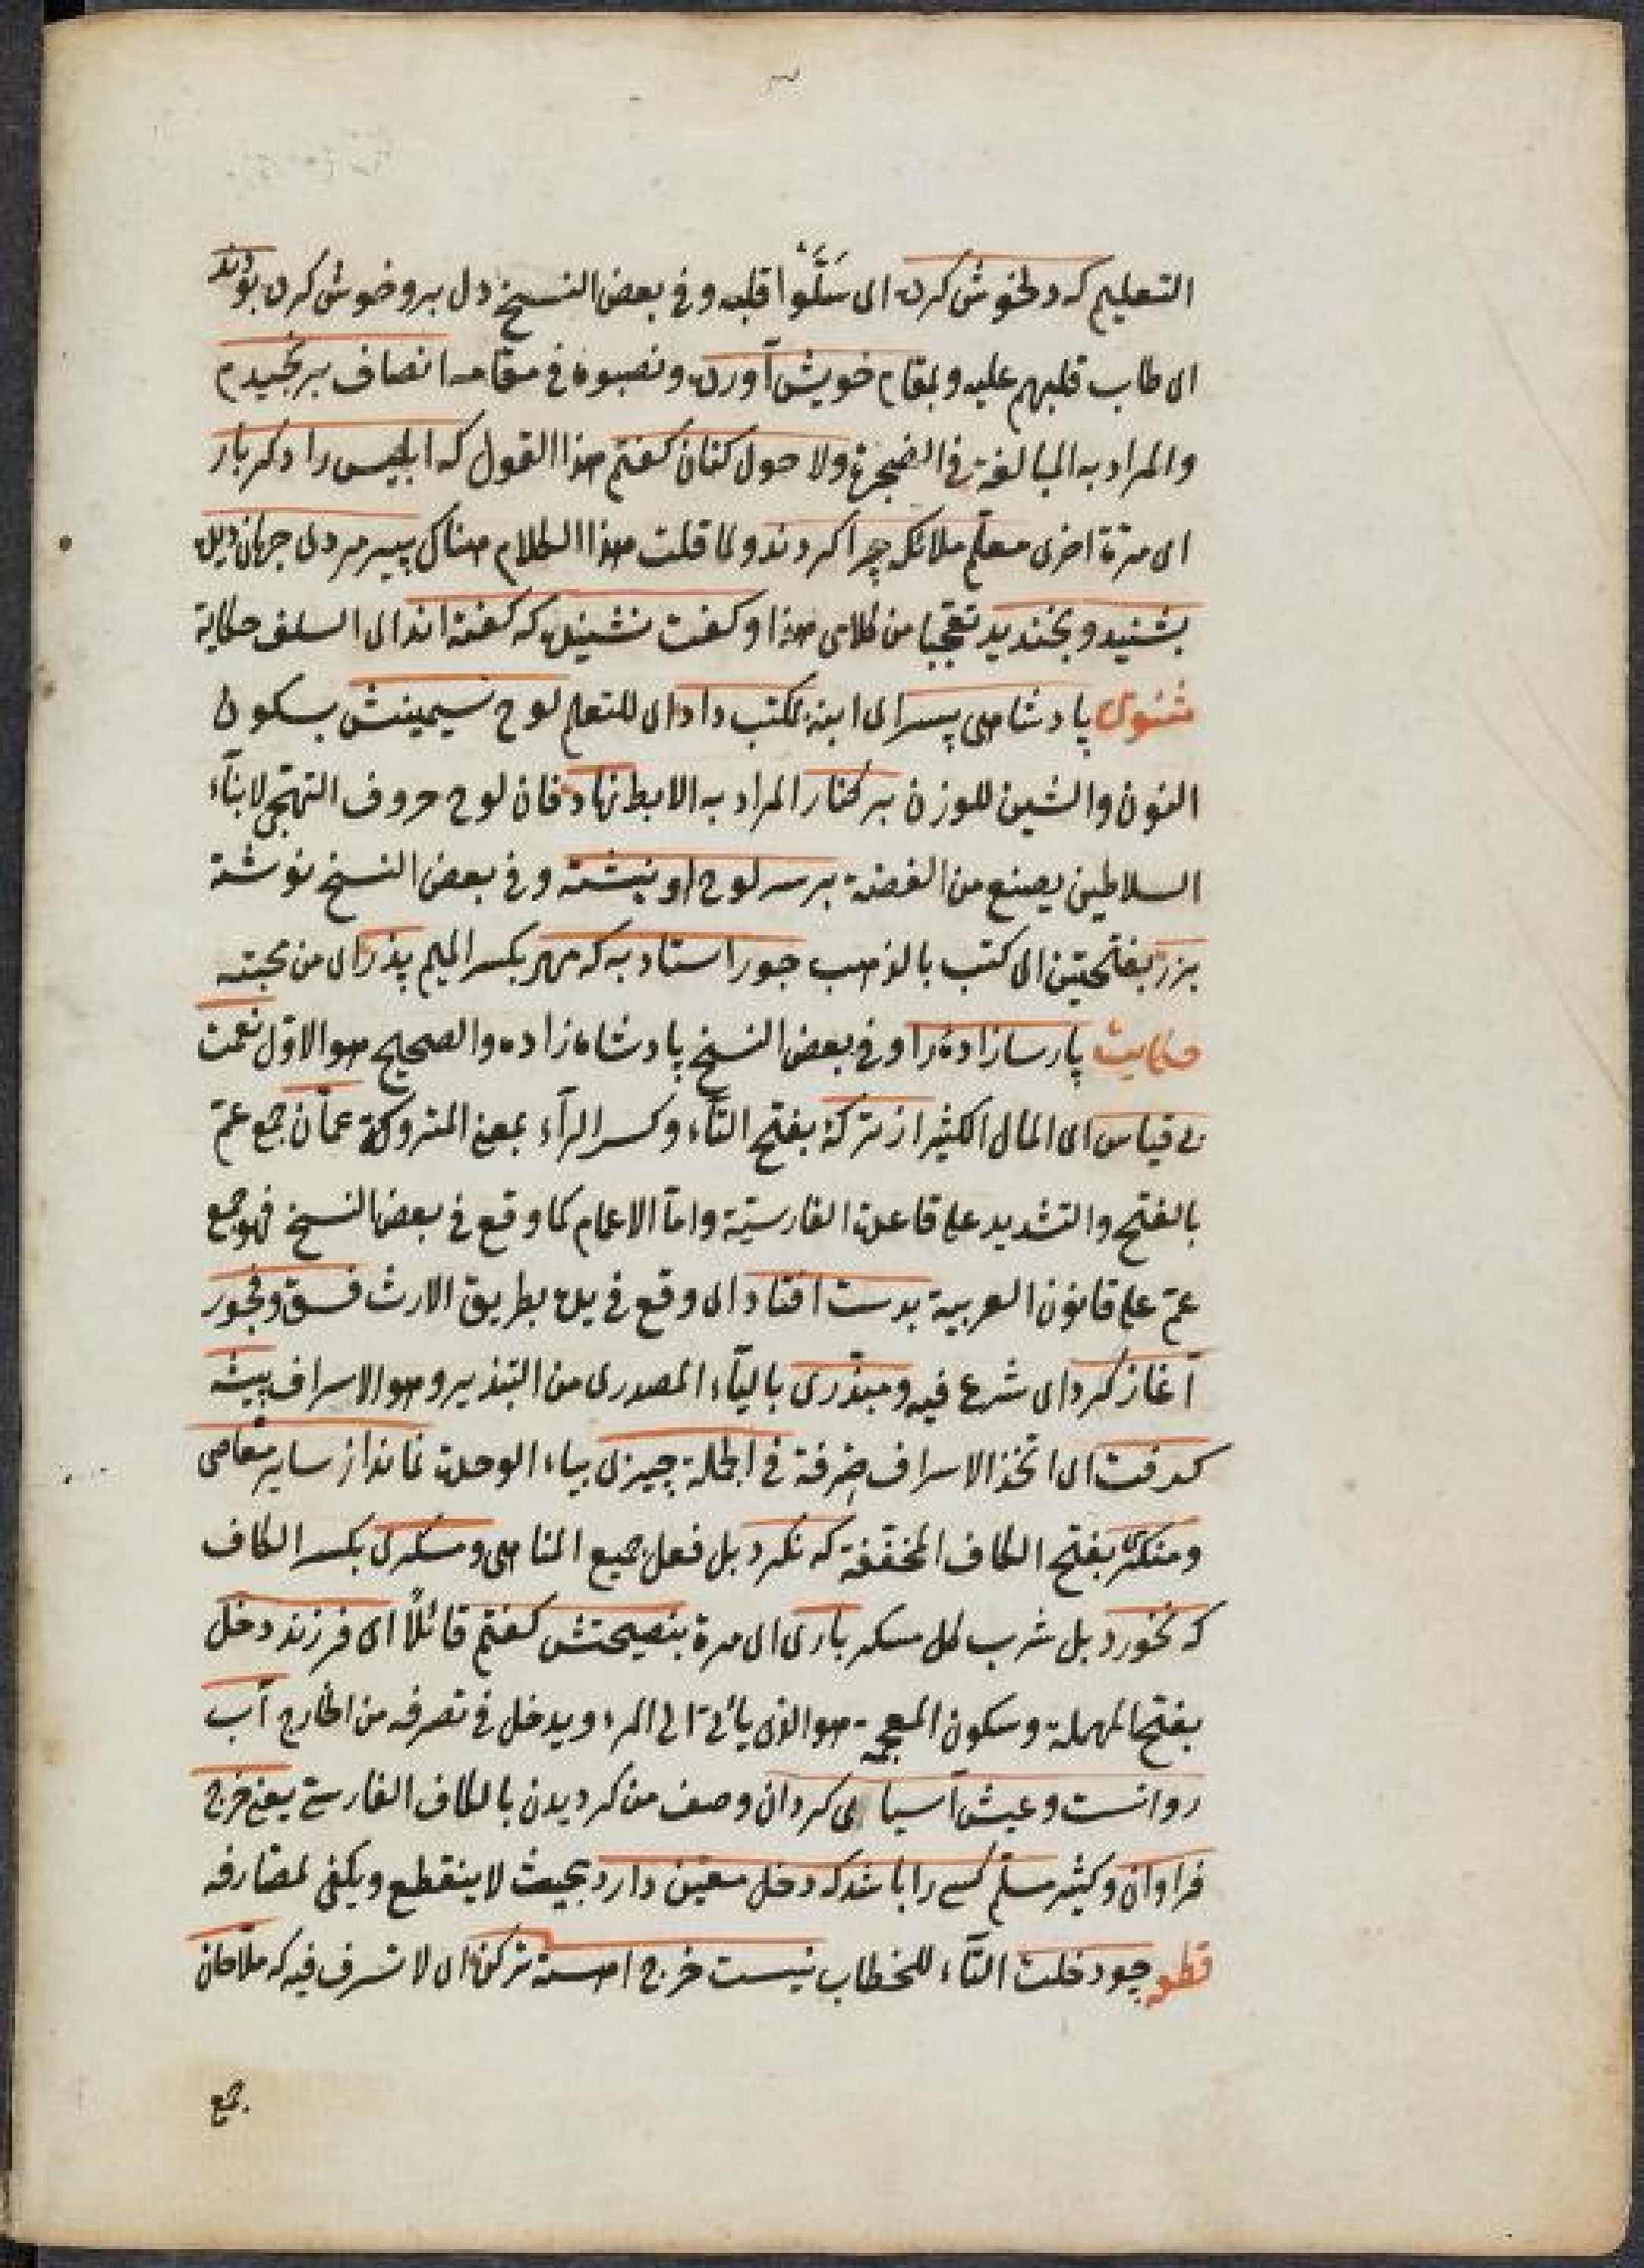 التعليم كه دلخوش كرده اى سَلَّوْا قلبه وفى بعض النسخ دل برو خوش كرده بودند
اى طاب قلبهم عليه وبمقام خويش آورده ونصبوه فى مقامه انصاف برنجيدم
والمراد به المبالغة فى الضجرة ولا حول كنان كفتم هذا القول كه ابليس را دكر بار
اى مرة اخرى معلّم ملائكه چرا كردند ولما قلت هذا الكلام هناك پير مردى جهان ديده
بشنيد وبخنديد تعجّبا من كلامى هذا وكفت نشنيده كه كفته اند اى السلف حكاية
مثنوى پادشاهى پسر اى ابنه بمكتب داد اى للتعلم لوح سيمينش بسكون
النون والشين للوزن بر كنار المراد به الابط نهاد فان لوح حروف التهجّى لابناء
السلاطين يصنع من الفضة بر سر لوح او نبشته وفى بعض النسخ نوشته
بزر بفتحتين اى كتب بالذهب جور استاد به كه مهر بكسر الميم پدر اى من محبته
حكايت پارسازادۀ را وفى بعض النسخ پادشاه زاده والصحيح هو الاوّل نعمت
بى قياس اى المال الكثير از تركۀ بفتح التاء وكسر الراء بمعنى المتروكة عمّان جمع عمّ
بالفتح والتشديد على قاعدة الفارسيّة وامّا الاعمام كما وقع فى بعض النسخ فهو جمع
عمّ على قانون العربية بدست افتاد اى وقع فى يده بطريق الارث فسق وفجور
آغاز كرد اى شرع فيه ومبذّرى بالياء المصدرى من التبذير وهو الاسراف پيشه
كرفت اى اتّخذ الاسراف حِرفة فى الجملة چيزى بياء الوحدة نماند از ساير معاصى
ومنكرى بفتح الكاف المخفّفة كه نكرد بل فعل جميع المناهى ومسكرى بكسر الكاف
كه نخورد بل شرب كل مسكر بارى اى مرة بنصيحتش كفتم قائلًا اى فرزند دخل
بفتح المهملة وسكون المعجمة هو الذى يأتى الى المرء ويدخل فى تصرفه من الخارج آب
روانست وعيش آسياى كردان وصف من كرديدن بالكاف الفارسى يعنى خرج
فراوان وكثير مسلّم كسى را باشد كه دخل معيّن دارد بحيث لا ينقطع ويكفى لمصارفه
قطعه چو دخلت التاء للخطاب نيست خرج اهسته تر كن اى لا تسرف فيه كه ملّاحان
جمع